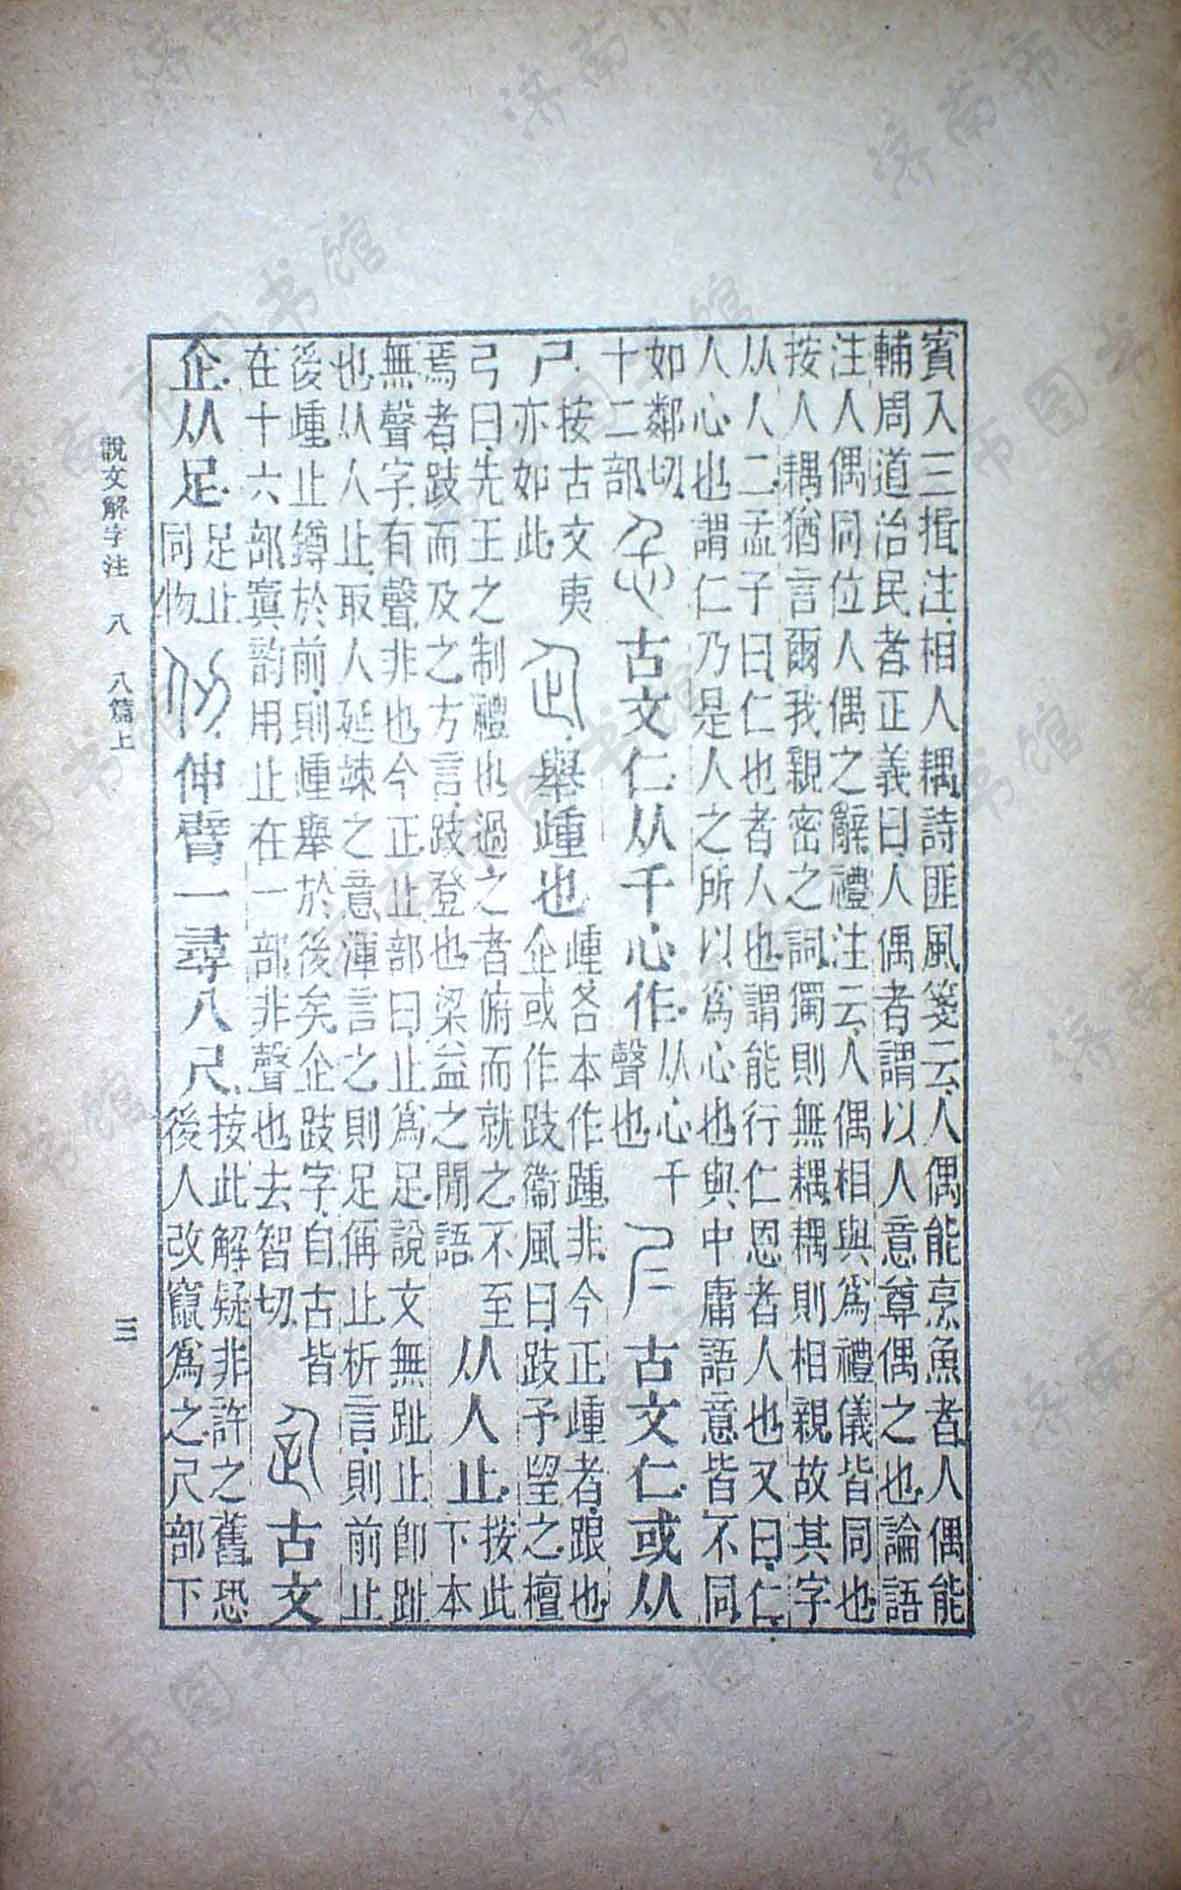 賓入三揖注相人耦詩匪風箋云人偶能烹魚者人偶能
輔周道治民者正義曰人偶者謂以人意尊偶之也論語
注人偶同位人偶之辭禮注云人偶相與爲禮儀皆同也
按人耦猶言爾我親密之詞獨則無耦耦則相親故其字
从人二孟子曰仁也者人也謂能行仁恩者人也又曰仁
人心也謂仁乃是人之所以爲心也與中庸語意皆不同
如鄰切
十二部
忎古文仁从千心作
从心千
聲也
𡰥古文仁或从
尸
按古文夷
亦如此
企舉歱也
歱各本作踵非今正歱者跟也
企或作跂衞風曰跂予望之檀
弓曰先王之制禮也過之者俯而就之不至
焉者跂而及之方言跂登也梁益之閒語
从人止
按此
下本
無聲字有聲非也今正止部曰止爲足說文無趾止卽趾
也从人止取人延竦之意渾言之則足偁止析言則前止
後歱止鐏於前則歱舉於後矣企跂字自古皆
在十六部寘韵用止在一部非聲也去智切
𠈮古文
企从足
足止
同物
仞伸臂一尋八尺
按此解疑非許之舊恐
後人改竄爲之尺部下
說文解字注 八 八篇上 三
济南市图书馆